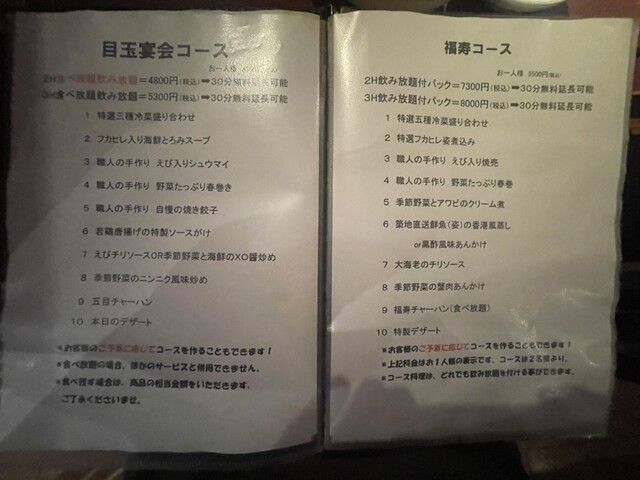 目玉宴会コース
お一人様
2H食べ放題飲み放題＝4800円(税込)➡30分無料延長可能
3H食べ放題飲み放題＝5300円(税込)➡30分無料延長可能
1 特選三種冷菜盛り合わせ
2 フカヒレ入り海鮮とろみスープ
3 職人の手作り えび入りシュウマイ
4 職人の手作り 野菜たっぷり春巻き
5 職人の手作り 自慢の焼き餃子
6 若鶏唐揚げの特製ソースがけ
7 えびチリソースOR季節野菜と海鮮のXO醤炒め
8 季節野菜のニンニク風味炒め
9 五目チャーハン
10 本日のデザート
*お客様のご予算に応じてコースを作ることもできます！
*食べ放題の場合、ほかのサービスと併用できません。
*食べ残す場合は、商品の相当金額をいただきます、
ご了承くださいませ。
福寿コース
お一人様 5500円(税込)
2H飲み放題付パック＝7300円(税込)➡30分無料延長可能
3H飲み放題付パック＝8000円(税込)➡30分無料延長可能
1 特選五種冷菜盛り合わせ
2 特選フカヒレ姿煮込み
3 職人の手作り えび入り焼売
4 職人の手作り 野菜たっぷり春巻
5 季節野菜とアワビのクリーム煮
6 築地直送鮮魚(姿)の香港風蒸し
or黒酢風味あんかけ
7 大海老のチリソース
8 季節野菜の蟹肉あんかけ
9 福寿チャーハン(食べ放題)
10 特製デザート
*お客様のご予算に応じてコースを作ることもできます！
*上記料金はお1人様の表示です、コースは2名様より。
*コース料理は、どれでも飲み放題を付ける事ができます。